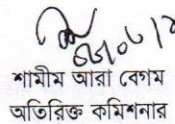 শামীম আরা বেগম
অতিরিক্ত কমিশনার